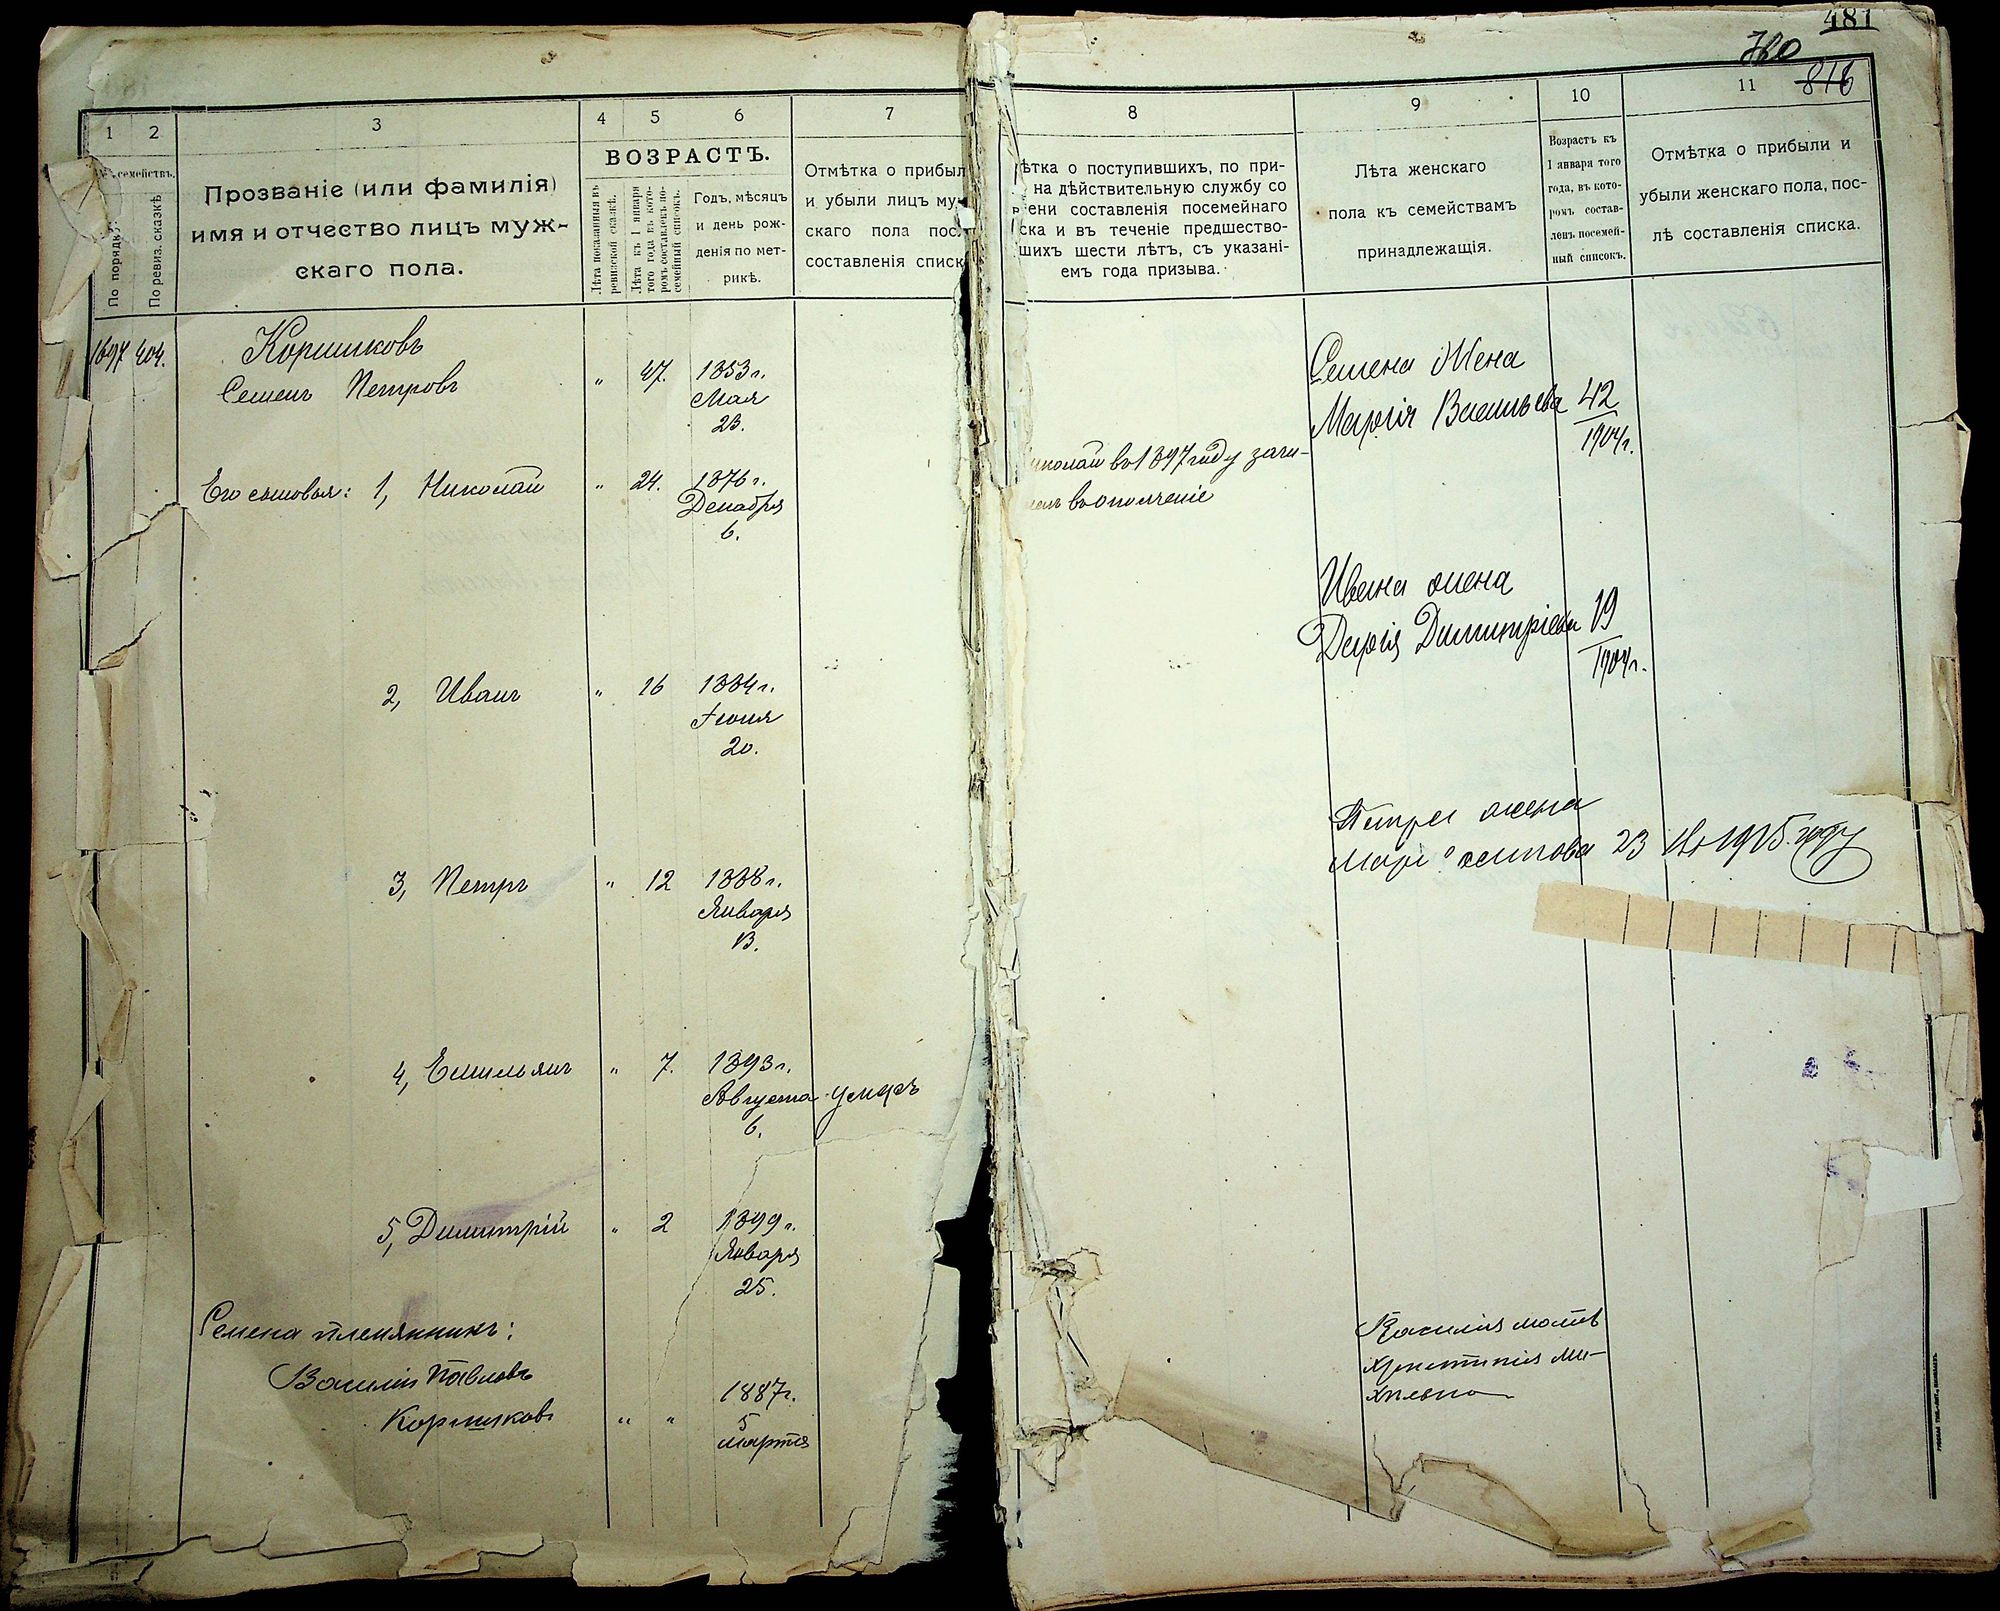 481
760
816
1
2
3
4
5
6
7
№ семействъ.
По порядку.
По ревиз. сказкѣ
Прозваніе (или фамилія)
имя и отчество лицъ муж-
скаго пола.
ВОЗРАСТЪ.
Лѣта показанныя въ
ревизской сказкѣ.
Лѣта къ 1 января
того года въ кото-
ромъ составленъ по-
семейный списокъ.
Годъ, мѣсяцъ
и день рож-
денія по мет-
рикѣ.
Отмѣтка о прибыл
и убыли лицъ му
скаго пола пос
составленія списк
1697 404.
Коршиковъ
Семенъ Петровъ " 47. 1853 г.
Мая
23.
Его сыновья: 1, Николай " 24. 1876 г.
Декабря
6.
2, Иванъ " 16 1884 г.
Іюня
20.
3, Петръ " 12 1888 г.
Января
13.
4, Емельянъ " 7. 1893 г.
Августа умеръ
6.
5, Димитрій " 2 1899 г.
Января
25.
Семена племянникъ:
Василій Павловъ
Коршиковъ " " 1887 г.
5
марта
8
9
10
11
ѣтка о поступившихъ, по при-
на дѣйствительную службу со
ени составленія посемейнаго
ска и въ теченіе предшество-
шихъ шести лѣтъ, съ указані-
емъ года призыва.
Лѣта женскаго
пола къ семействамъ
принадлежащія.
Возрастъ къ
1 января того
года, въ кото-
ромъ состав-
ленъ посемей-
ный списокъ.
Отмѣтка о прибыли и
убыли женскаго пола, пос-
лѣ составленія списка.
Семена Жена
Марія Васильева 42
1904 г.
иколай въ 1897 году зачи-
ленъ въ ополченіе
Ивана жена
Дарія Димитріева 19
1904 г.
Петра жена
23 въ 1915 году
Василія мать
Христинія Ми-